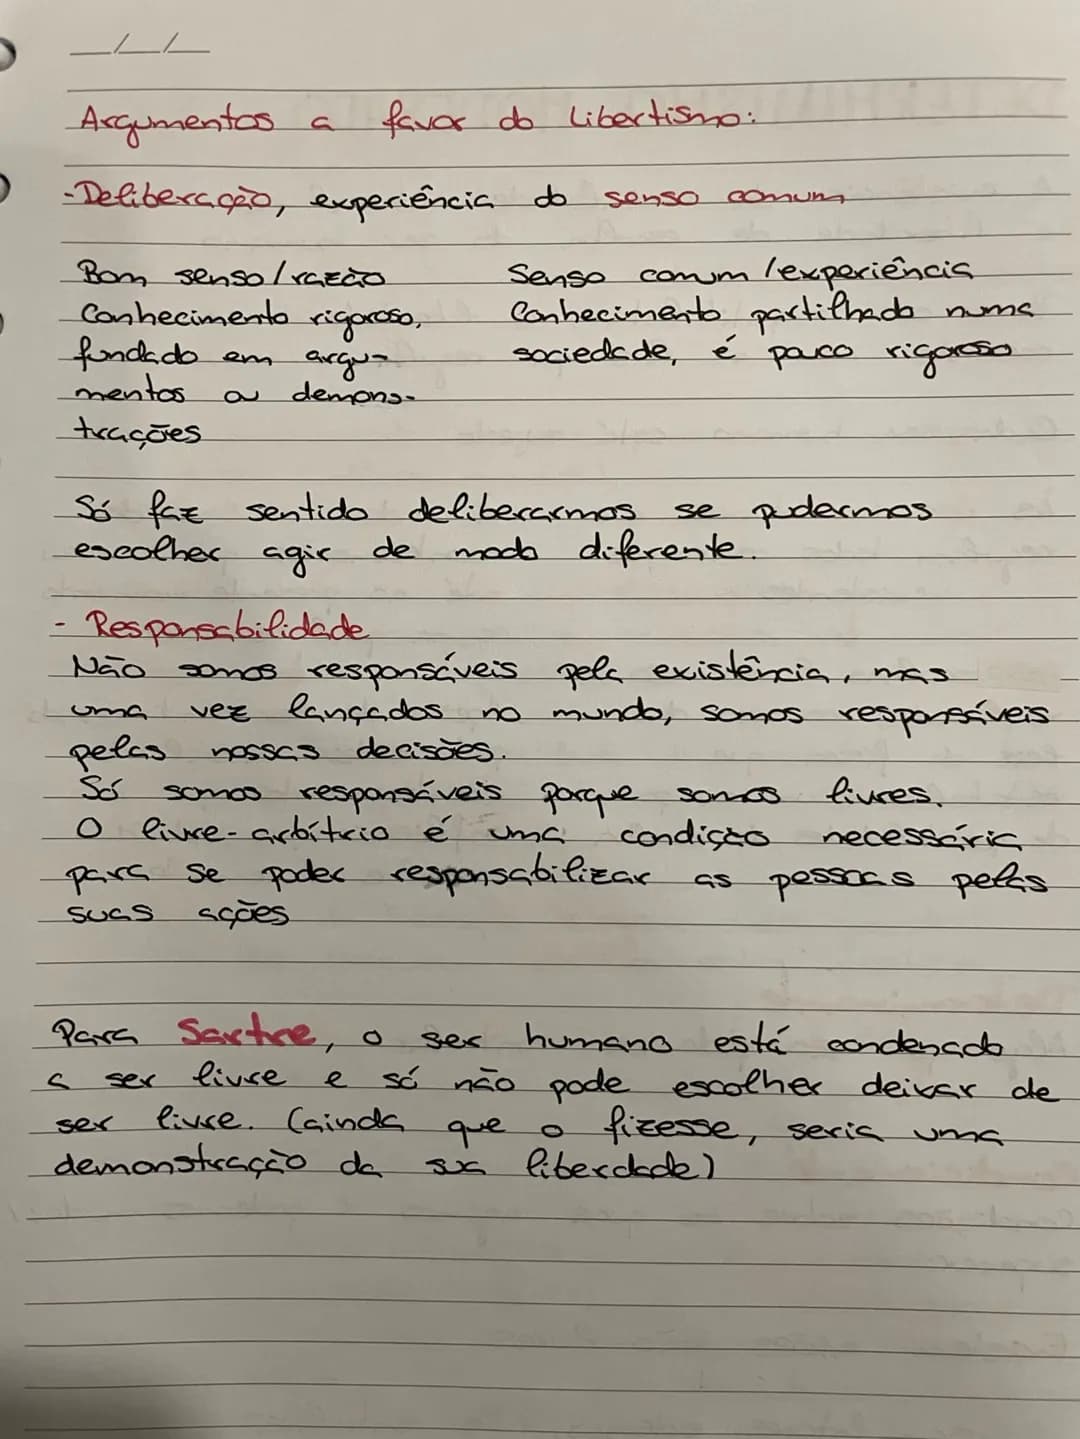 Argumentos a favor do Libertismo:
-Deliberação, experiência do senso comum
Bom senso/razão
Conhecimento rigoroso,
fundado em argu-
mentos ou demons-
trações
Senso comum/experiência
Conhecimento partilhado numa
sociedade, é pouco rigoroso
Só faz sentido deliberarmos se pudermos
escolher agir de modo diferente.
- Responsabilidade
Não somos responsáveis pela existência, mas
uma vez lançados no mundo, somos responsáveis
pelas nossas decisões.
Só somos responsáveis porque somos livres.
O livre-arbítrio é uma condição necessária
para se poder responsabilizar as pessoas pelas
suas ações
Para Sartre, o ser humano está condenado
a ser livre e só não pode escolher deixar de
ser livre. (ainda que o fizesse, seria uma
demonstração da sua liberdade)